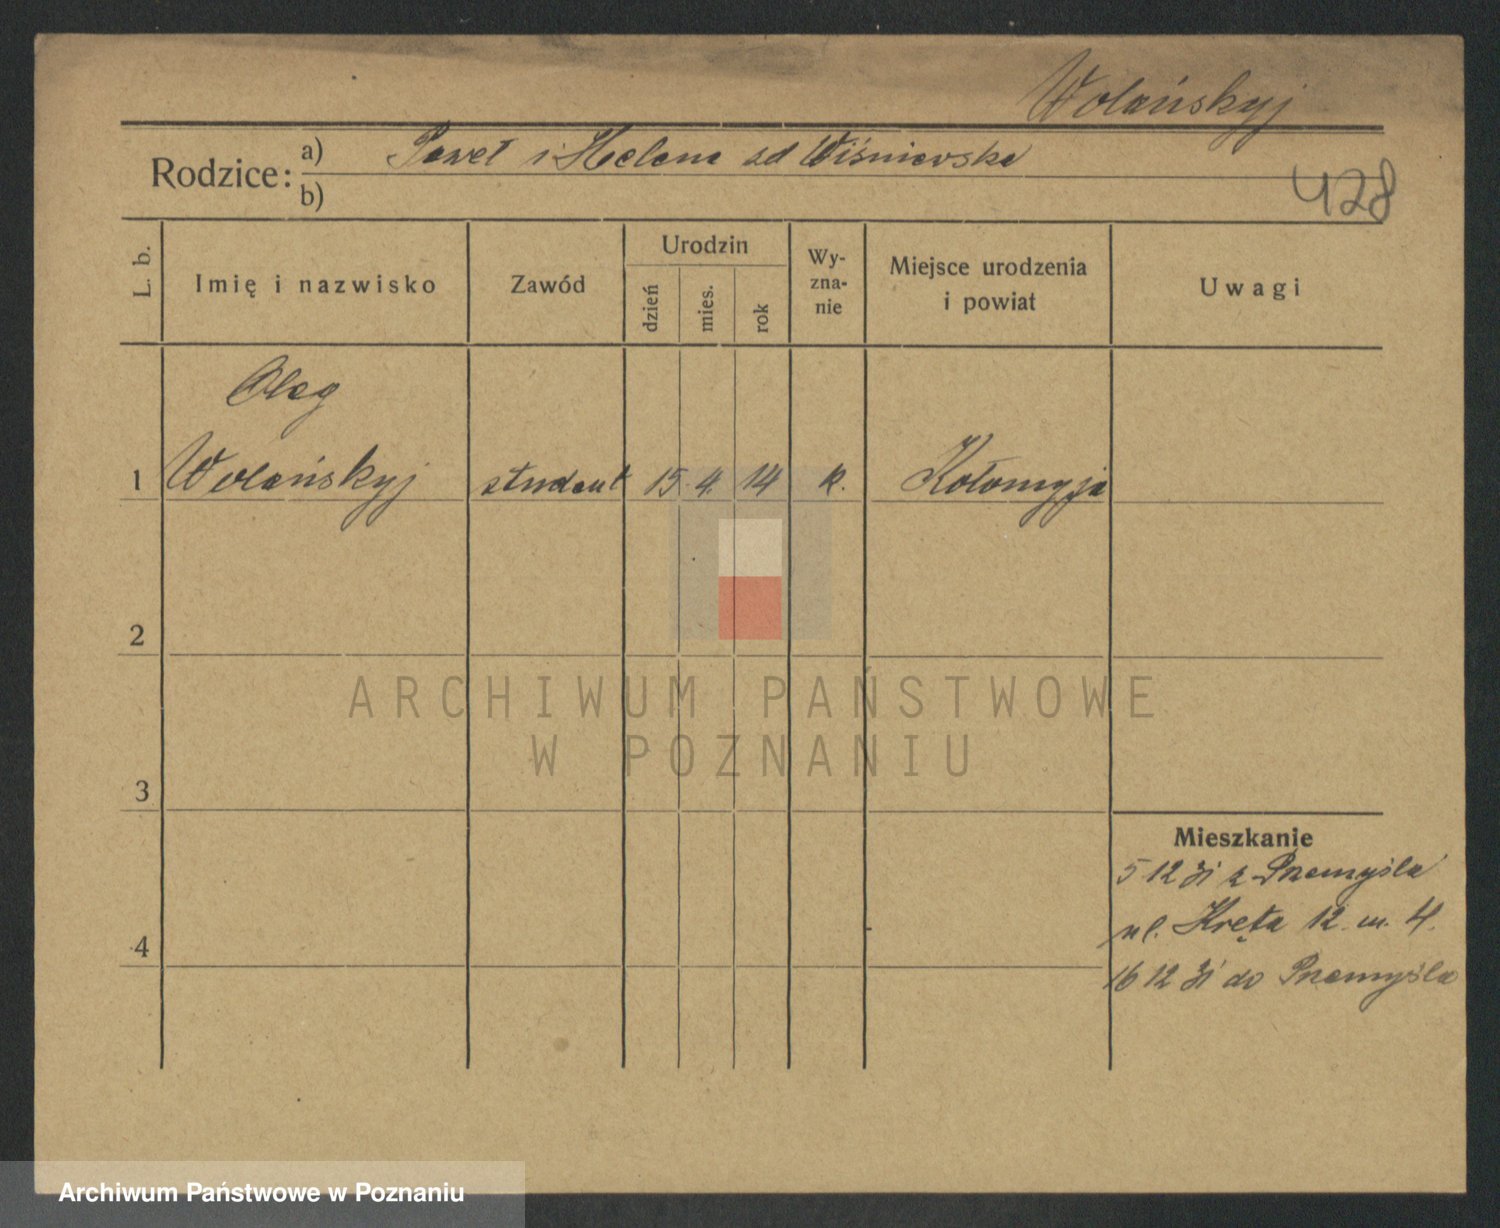 Wolańskyj
Rodzice: a) Paweł i Helena zd Wiśniewska
b)
428
L. b.
Imię i nazwisko
Zawód
Urodzin
dzień
mies.
rok
Wy-
zna-
nie
Miejsce urodzenia
i powiat
Uwagi
Oleg
1 Wolańskyj student 15. 4. 14 k. Kołomyja
2
3
4
Mieszkanie
5 12 31 z Przemyśla
ul. Kręta 12. m. 4.
16 12 31 do Przemyśla
ARCHIWUM PAŃSTWOWE
W POZNANIU
Archiwum Państwowe w Poznaniu